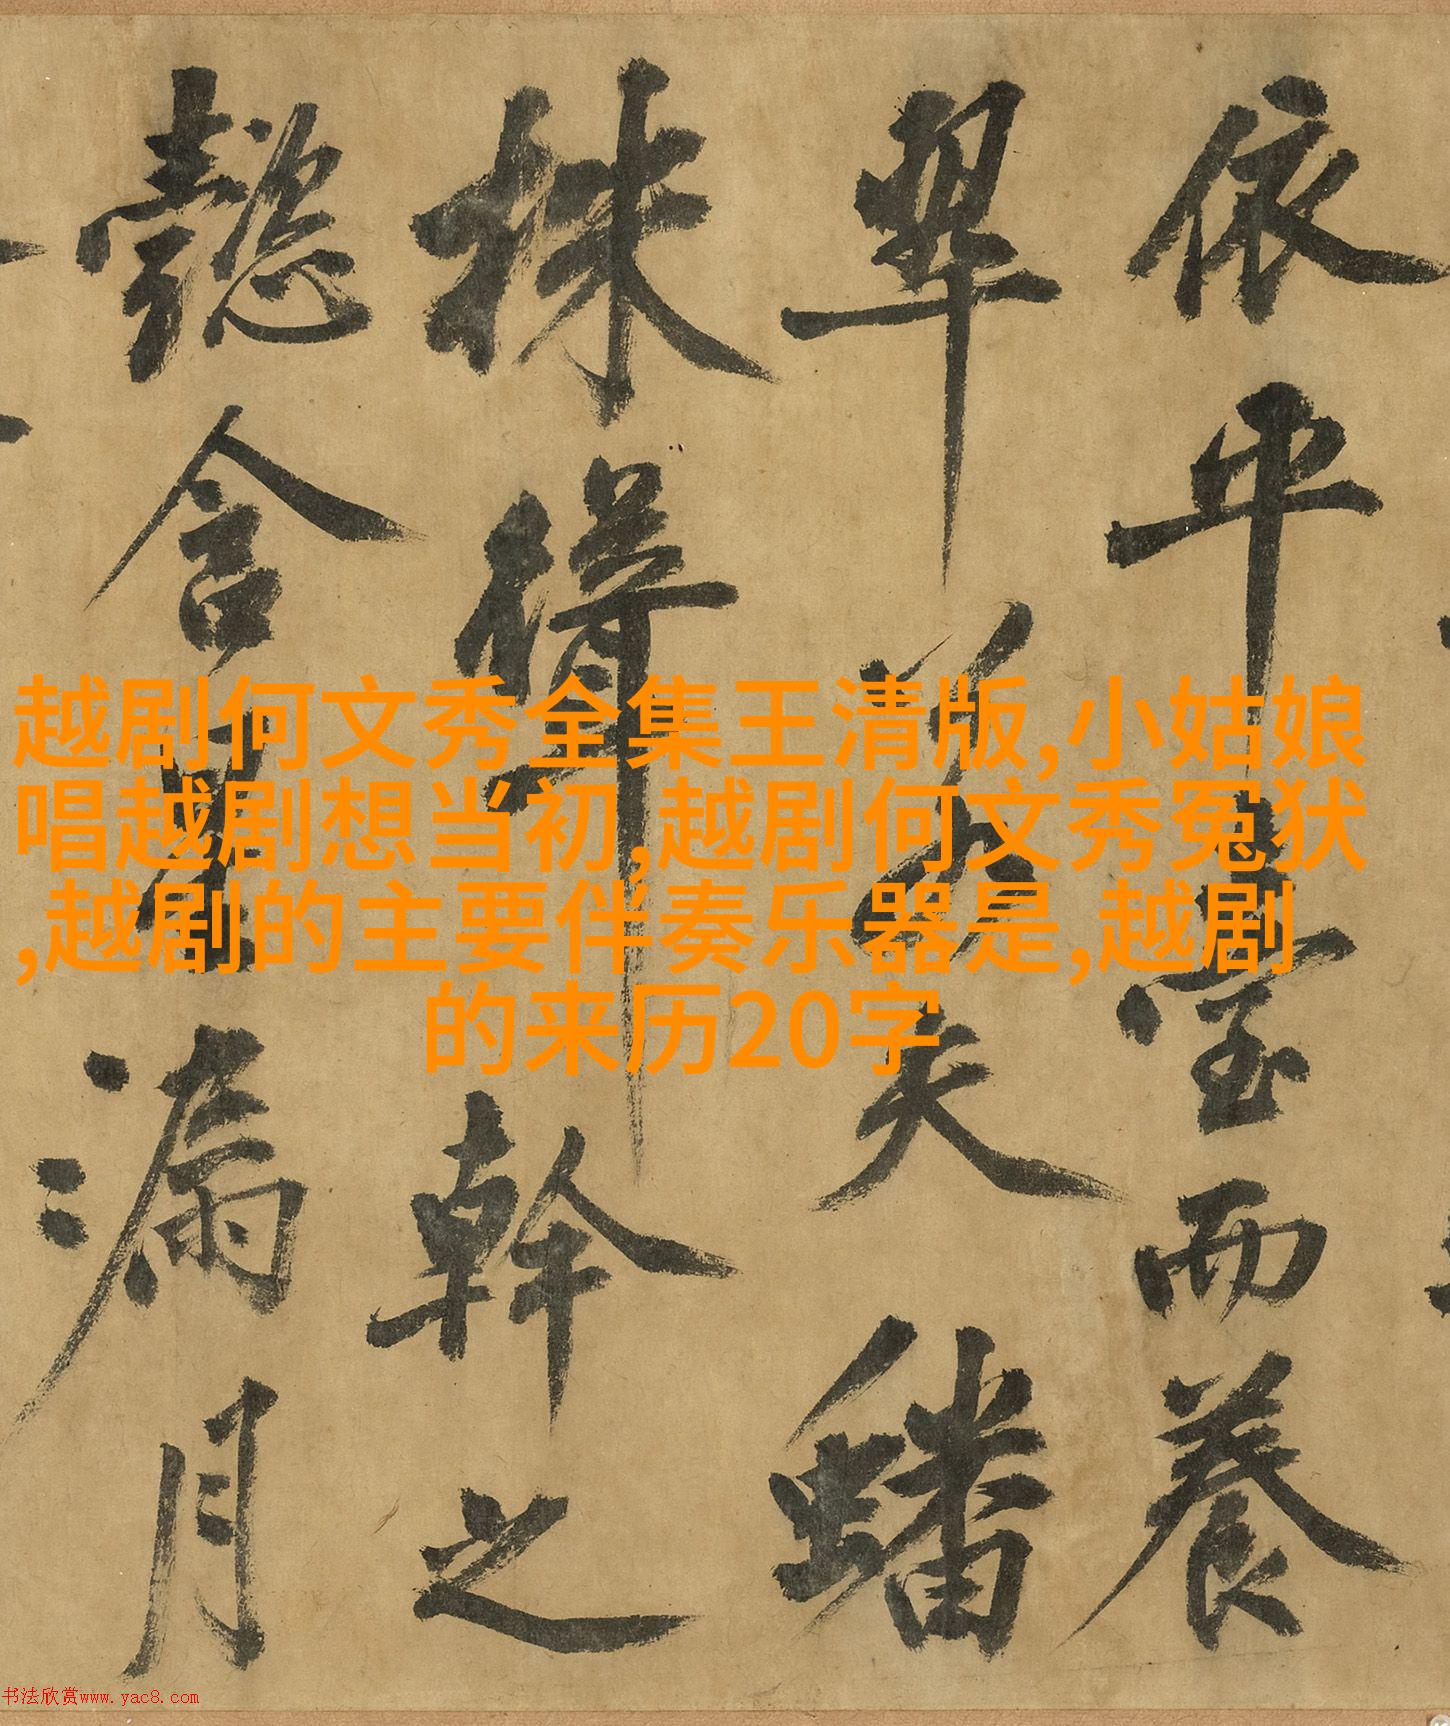 依平臺而養
翠若夫蟠
株幹之
懿含星漏月
越剧何文秀全集王清版,小姑娘
唱越剧想当初,越剧何文秀冤状
,越剧的主要伴奏乐器是,越剧
的来历20字
书法欣赏www.yac8.com